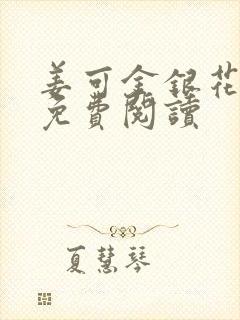 姜可金銀花
免費閱讀
夏慧琴